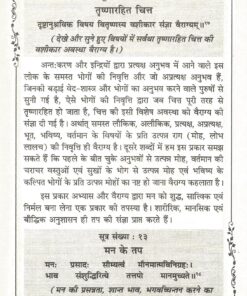 तृष्णारहित चित्त
दृष्टानुश्रविक विषय वितृष्णस्य वशीकार संज्ञा वैराग्यम्॥
( देखे और सुने हुए विषयों में सर्वथा तृष्णारहित चित्त की
वशीकार अवस्था वैराग्य है। )
अन्तःकरण और इन्द्रियों द्वारा प्रत्यक्ष अनुभव में आने वाले इस
लोक के समस्त भोगों की निवृत्ति और जो अप्रत्यक्ष अनुभव हैं,
जिनकी बड़ाई वेद-शास्त्र और भोगों का अनुभव करने वाले पुरुषों से
सुनी गई है, ऐसे भोगों की निवृत्ति द्वारा जब चित्त पूरी तरह से
तृष्णारहित हो जाता है, चित्त की इसी विशेष अवस्था को वैराग्य की
संज्ञा दी गई है। अर्थात् समस्त लौकिक, अलौकिक, प्रत्यक्ष, अप्रत्यक्ष,
भूत, भविष्य, वर्तमान के विषयों के प्रति उत्पन्न राग (मोह, लोभ
लालच) की निवृत्ति वैराग्य है। दूसरे शब्दों में हम इस प्रकार समझ
सकते हैं कि पहले के बीत चुके अनुभवों से उत्पन्न मोह, वर्तमान की
चराचर वस्तुओं एवं सुखों के भोग से उत्पन्न मोह एवं भविष्य के
कल्पित भोगों के प्रति उत्पन्न मोहों का नष्ट हो जाना वैराग्य कहलाता है।
इस प्रकार अभ्यास और वैराग्य द्वारा मन को शुद्ध, सात्विक एवं
निर्मल बना लेना एक प्रकार की तपस्या है। शारीरिक, मानसिक एवं
बौद्धिक अनुशासन ही तप की संज्ञा प्राप्त करते हैं।
सूत्र संख्या : १३
मन के तप
मनः प्रसादः सौम्यत्वं मौनमात्मविनिग्रहः।
भाव संशुद्धिरित्ये तत्तपो मानमुच्यते॥
( मन की प्रसन्नता, शान्त भाव, भगवच्चिन्तन करने का